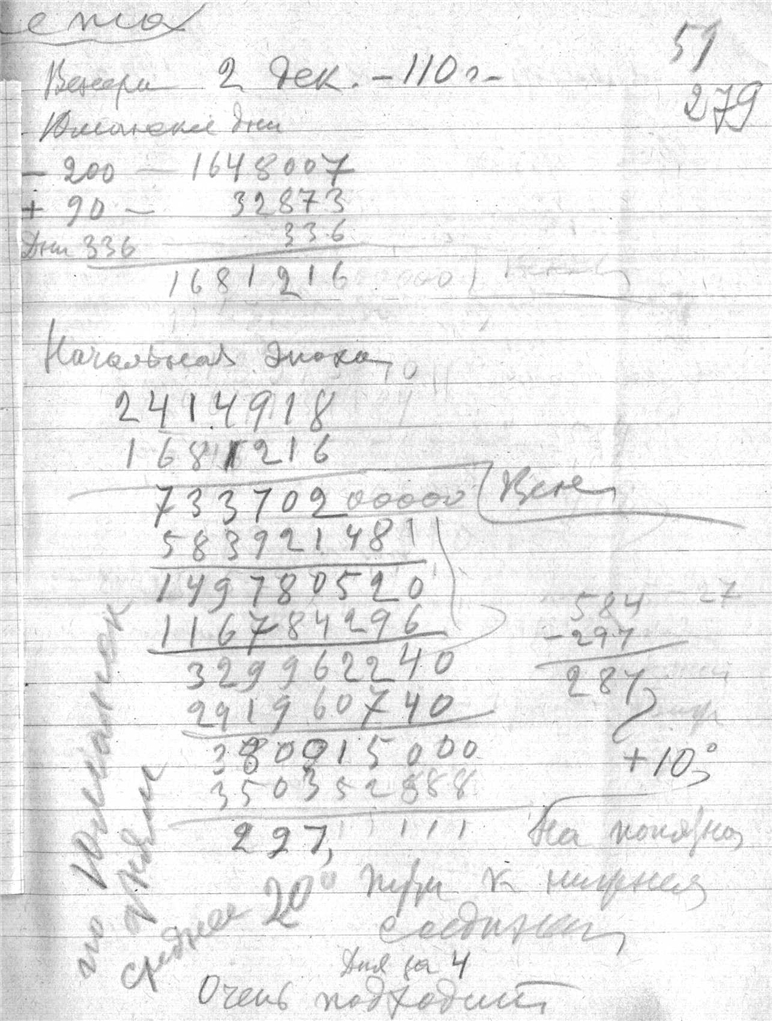 51
279
Венера 2 дек. – 110 г.
Юлианские дни
– 200 — 1648007
+ 90 — 32873
Дни 336 336
1681216
Начальная эпоха
2414918
1681216
733702 00000 Вене
583921481
149780520
116784296
329962240
291960740
380915000
350352888
297,
584
– 297
287
+10°
по Юлианск
дням
среднее 20°
На
пути к нижнем
соединен
Дня за 4
Очень подходит